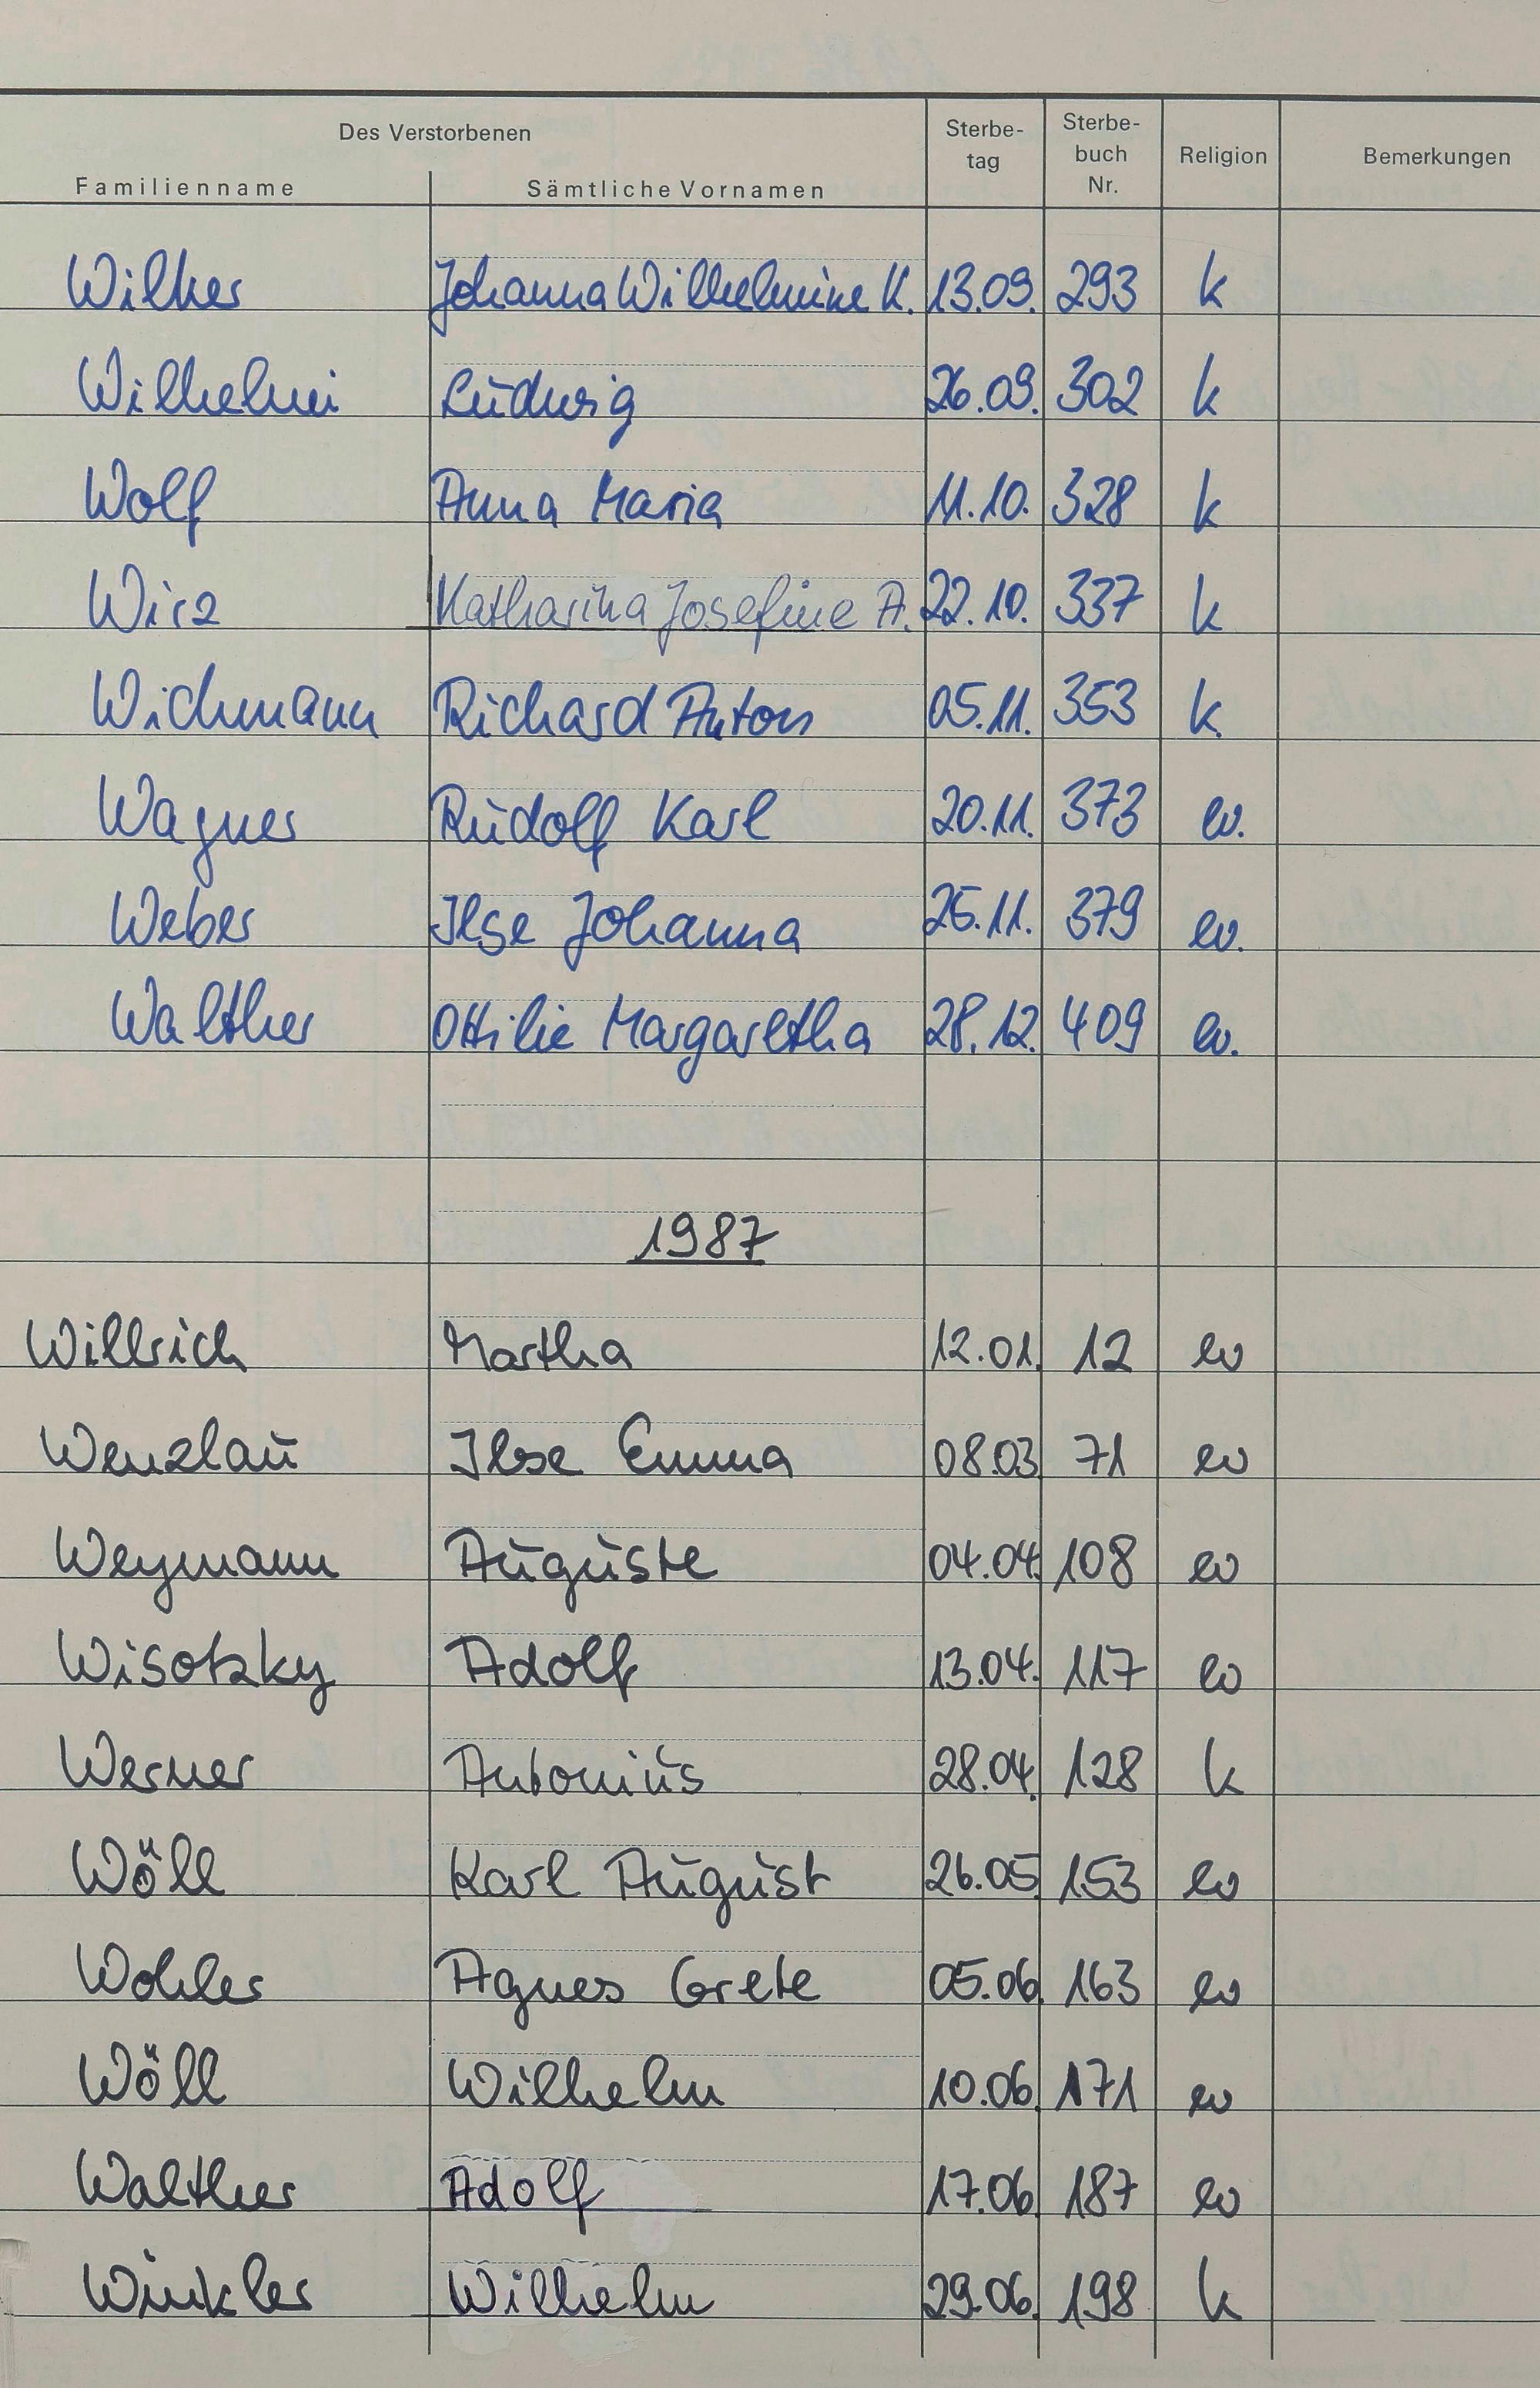 Des Verstorbenen
Familienname Sämtliche Vornamen Sterbe-tag Sterbe-buch Nr. Religion Bemerkungen
Wilker Johanna Wilhelmine K. 13.09. 293 k
Wilhelmi Ludwig 26.09. 302 k
Wolf Anna Maria 11.10. 328 k
Wirz Katharina Josefine A. 22.10. 337 k
Wichmann Richard Anton 05.11. 353 k
Wagner Rudolf Karl 20.11. 373 ev.
Weber Ilse Johanna 25.11. 379 ev.
Walther Ottilie Margaretha 28.12. 409 ev.
1987
Willrich Martha 12.01. 12 ev
Wenzlau Ilse Emma 08.03 71 ev
Weymann Auguste 04.04. 108 ev
Wisotzky Adolf 13.04. 117 ev
Werner Antonius 28.04. 128 k
Wöll Karl August 26.05 153 ev
Wohler Agnes Grete 05.06. 163 ev
Wöll Wilhelm 10.06. 171 ev
Walther Adolf 17.06. 187 ev
Winkler Wilhelm 29.06. 198 k